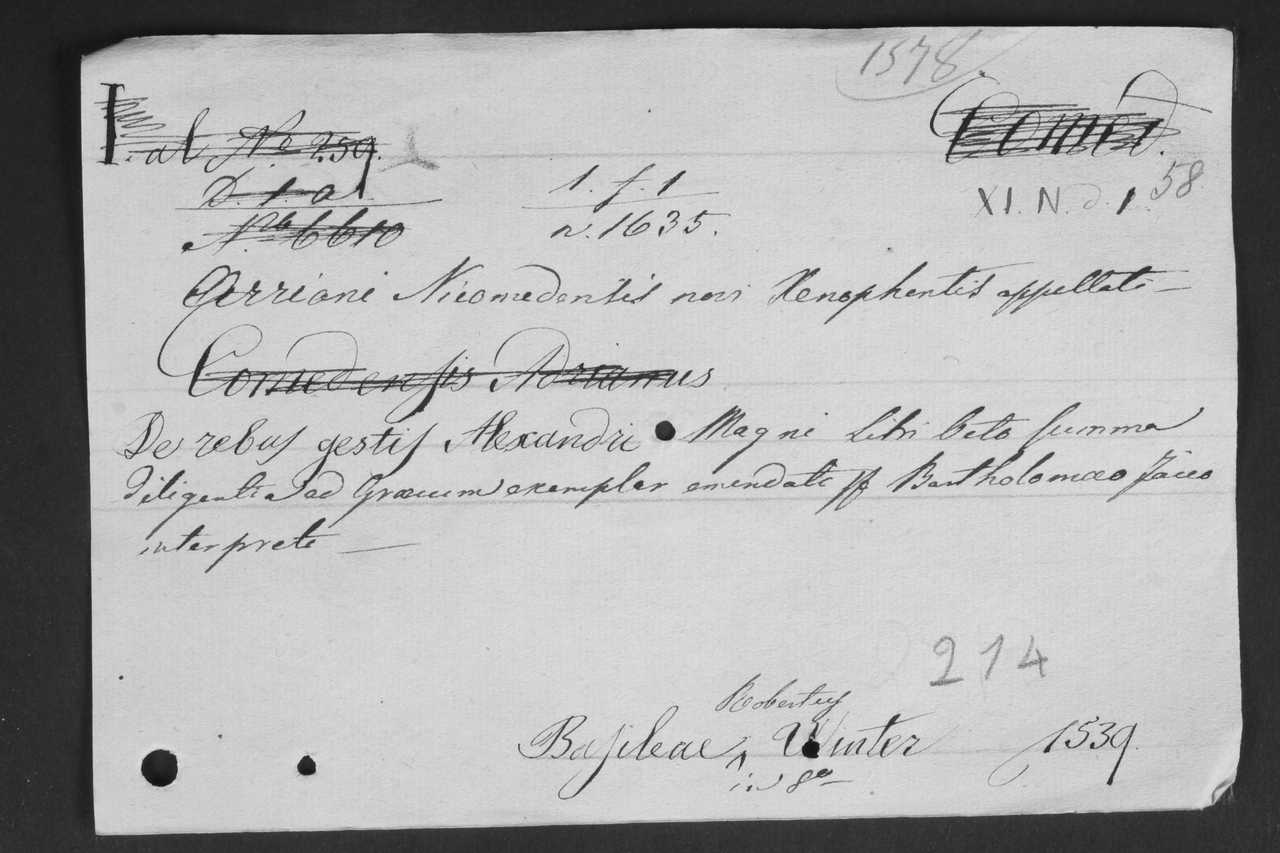 1578
I. al. No. 259.
Comed.
D. 1. a
1. f. 1
XI. N. d. 1. 58
No. 6610
n. 1635.
Arriani Nicomedensis novi Xenophentis appellati —
Comedensis Adrianus
De rebus gestis Alexandri Magni Libri Octo summa
diligentia ad Græcum exemplar emendati Bartholomæo Facio
interprete —
214
Robertus
Basileae, Winter 1539.
in 8o